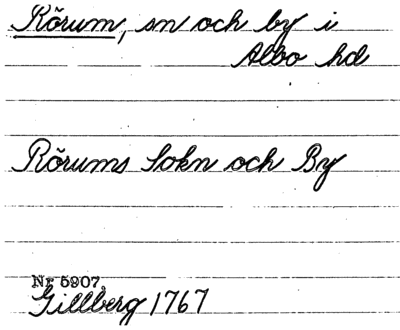 Rörum, sn och by i
Albo hd
Rörums Sokn och By
Nr 5907.
Gillberg 1767